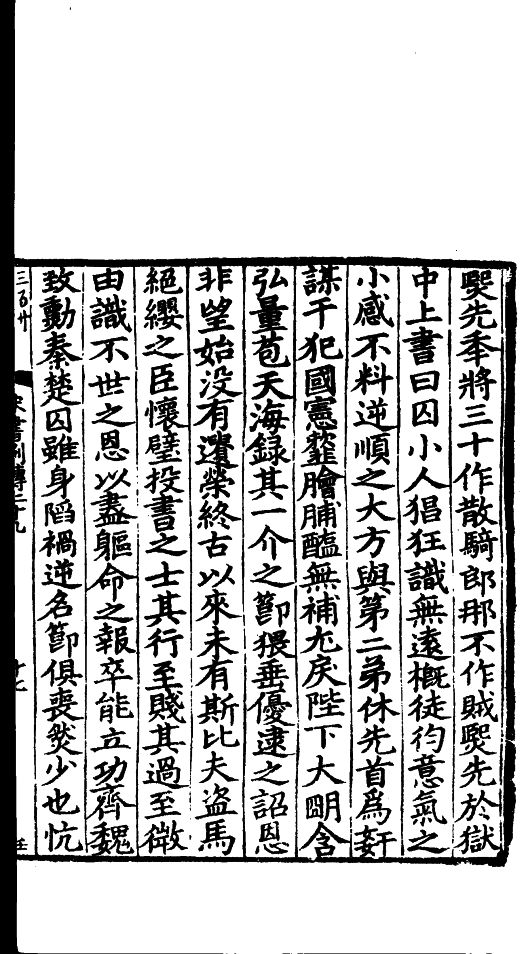 熈先奉將三十作散騎郎那不作賊熈先於獄
中上書曰囚小人猖狂識無遠槪徒徇意氣之
小感不料逆順之大方與第二弟休先首爲姧
謀干犯國憲虀膾脯醢無補尤戾陛下大明含
弘量苞天海録其一介之節猥垂優逮之詔恩
非望始没有遺榮終古以來未有斯比夫盜馬
絕纓之臣懷璧投書之士其行至賤其過至微
由識不世之恩以盡軀命之報卒能立功齊魏
致勳秦楚囚雖身陷禍逆名節俱喪然少也忼
三百廿
宋書列傳二十九
十七